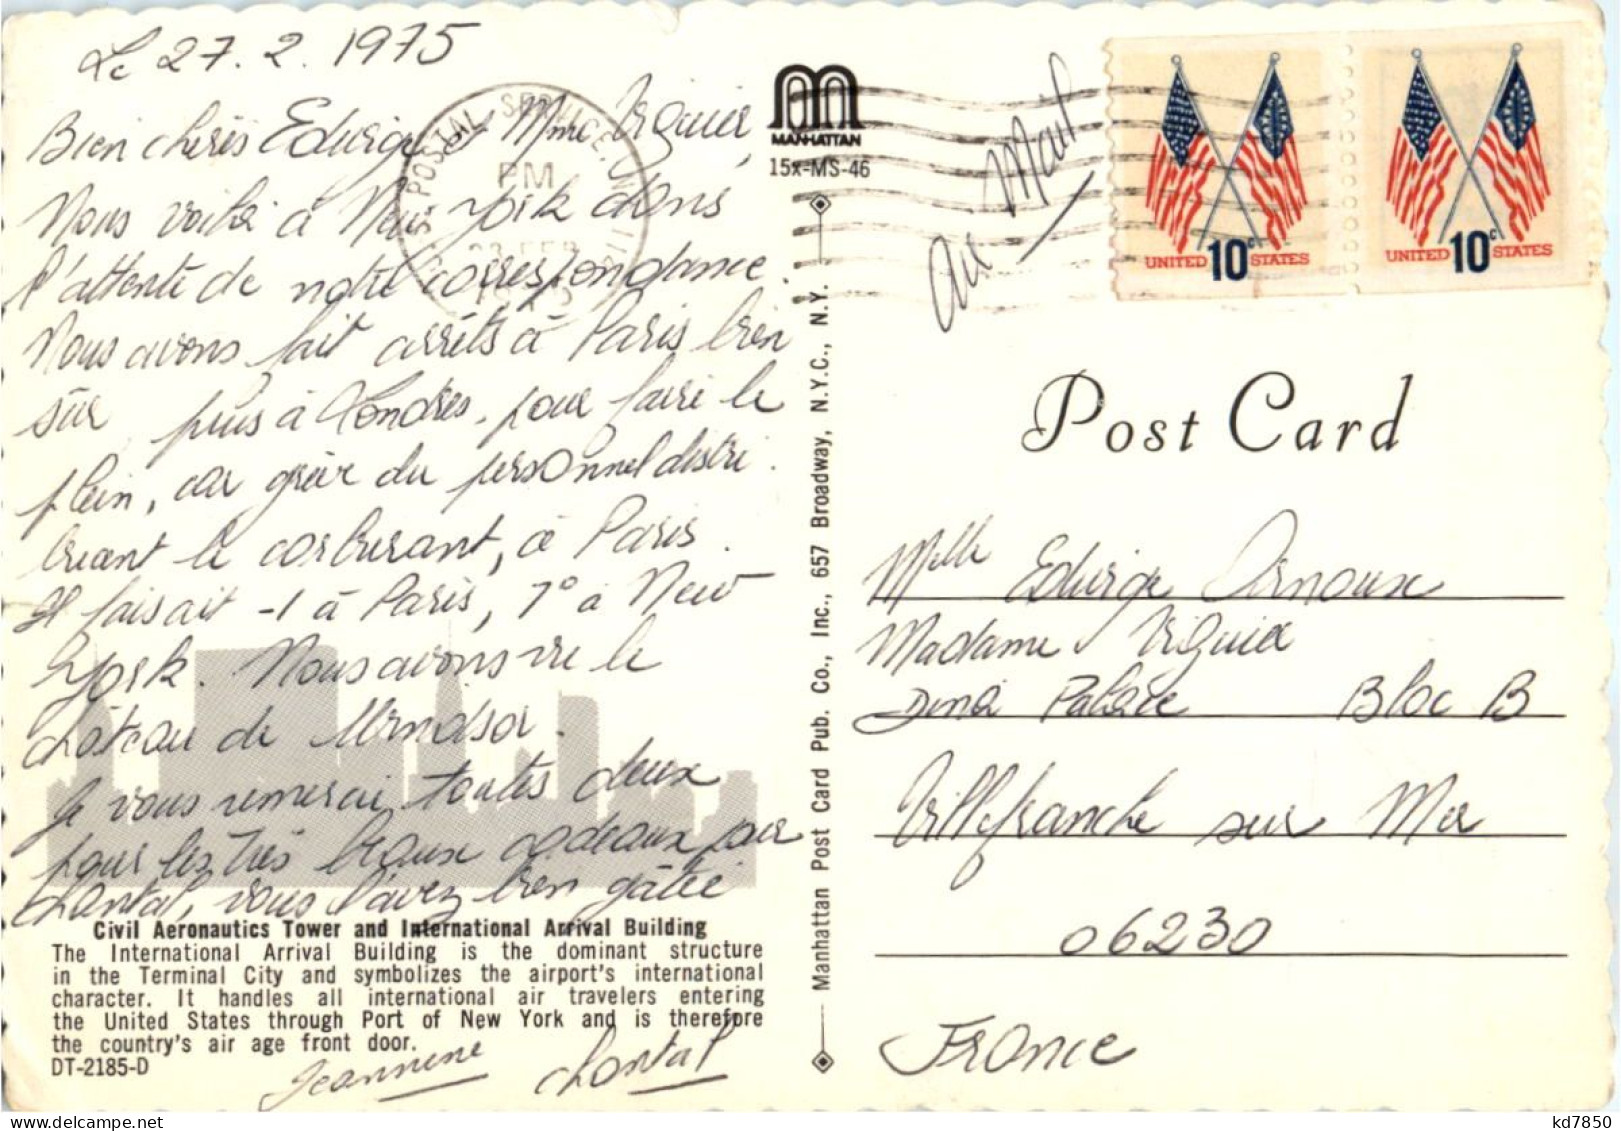 Le 27.2.1975
Bien chères Edwige, Mme Viguier,
Nous voilà à New York dans
l'attente de notre correspondance.
Nous avons fait arrêts à Paris bien
sûr, puis à Londres, pour faire le
plein, car grève du personnel distri-
buant le carburant, à Paris.
Il faisait -1 à Paris, 7° à New
York. Nous avons vu le
château de Windsor.
Je vous remercie, toutes deux
pour les très beaux cadeaux par
Chantal, vous l'avez bien gâtée
Civil Aeronautics Tower and International Arrival Building
The International Arrival Building is the dominant structure
in the Terminal City and symbolizes the airport's international
character. It handles all international air travelers entering
the United States through Port of New York and is therefore
the country's air age front door.
DT-2185-D
Jeannine Chantal
POSTAL SERVICE, N
PM
FEB
MANHATTAN
15x-MS-46
Manhattan Post Card Pub. Co., Inc., 657 Broadway, N.Y.C., N.Y.
Air Mail
UNITED 10c STATES
UNITED 10c STATES
Post Card
Melle Edwige Arnoux
Madame Viguier
Dina Palace Bloc B
Villefranche sur Mer
06230
France
kd7850